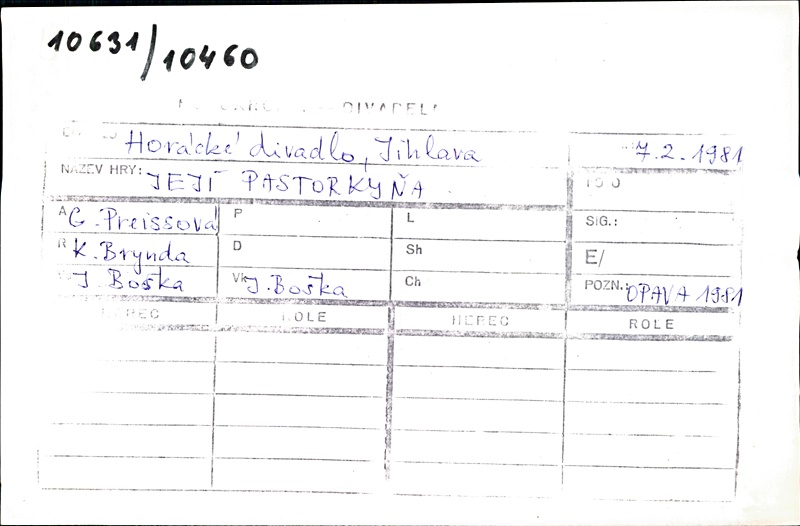 10631/10460
DIVADELN
Horácké divadlo, Jihlava 7.2.1981
NÁZEV HRY: JEJÍ PASTORKYŇA
A G. Preissová P L SIG.:
R K. Brynda D Sh E/
J. Boška VK J. Boška Ch POZN.: OPAVA 1981
HEREC ROLE HEREC ROLE